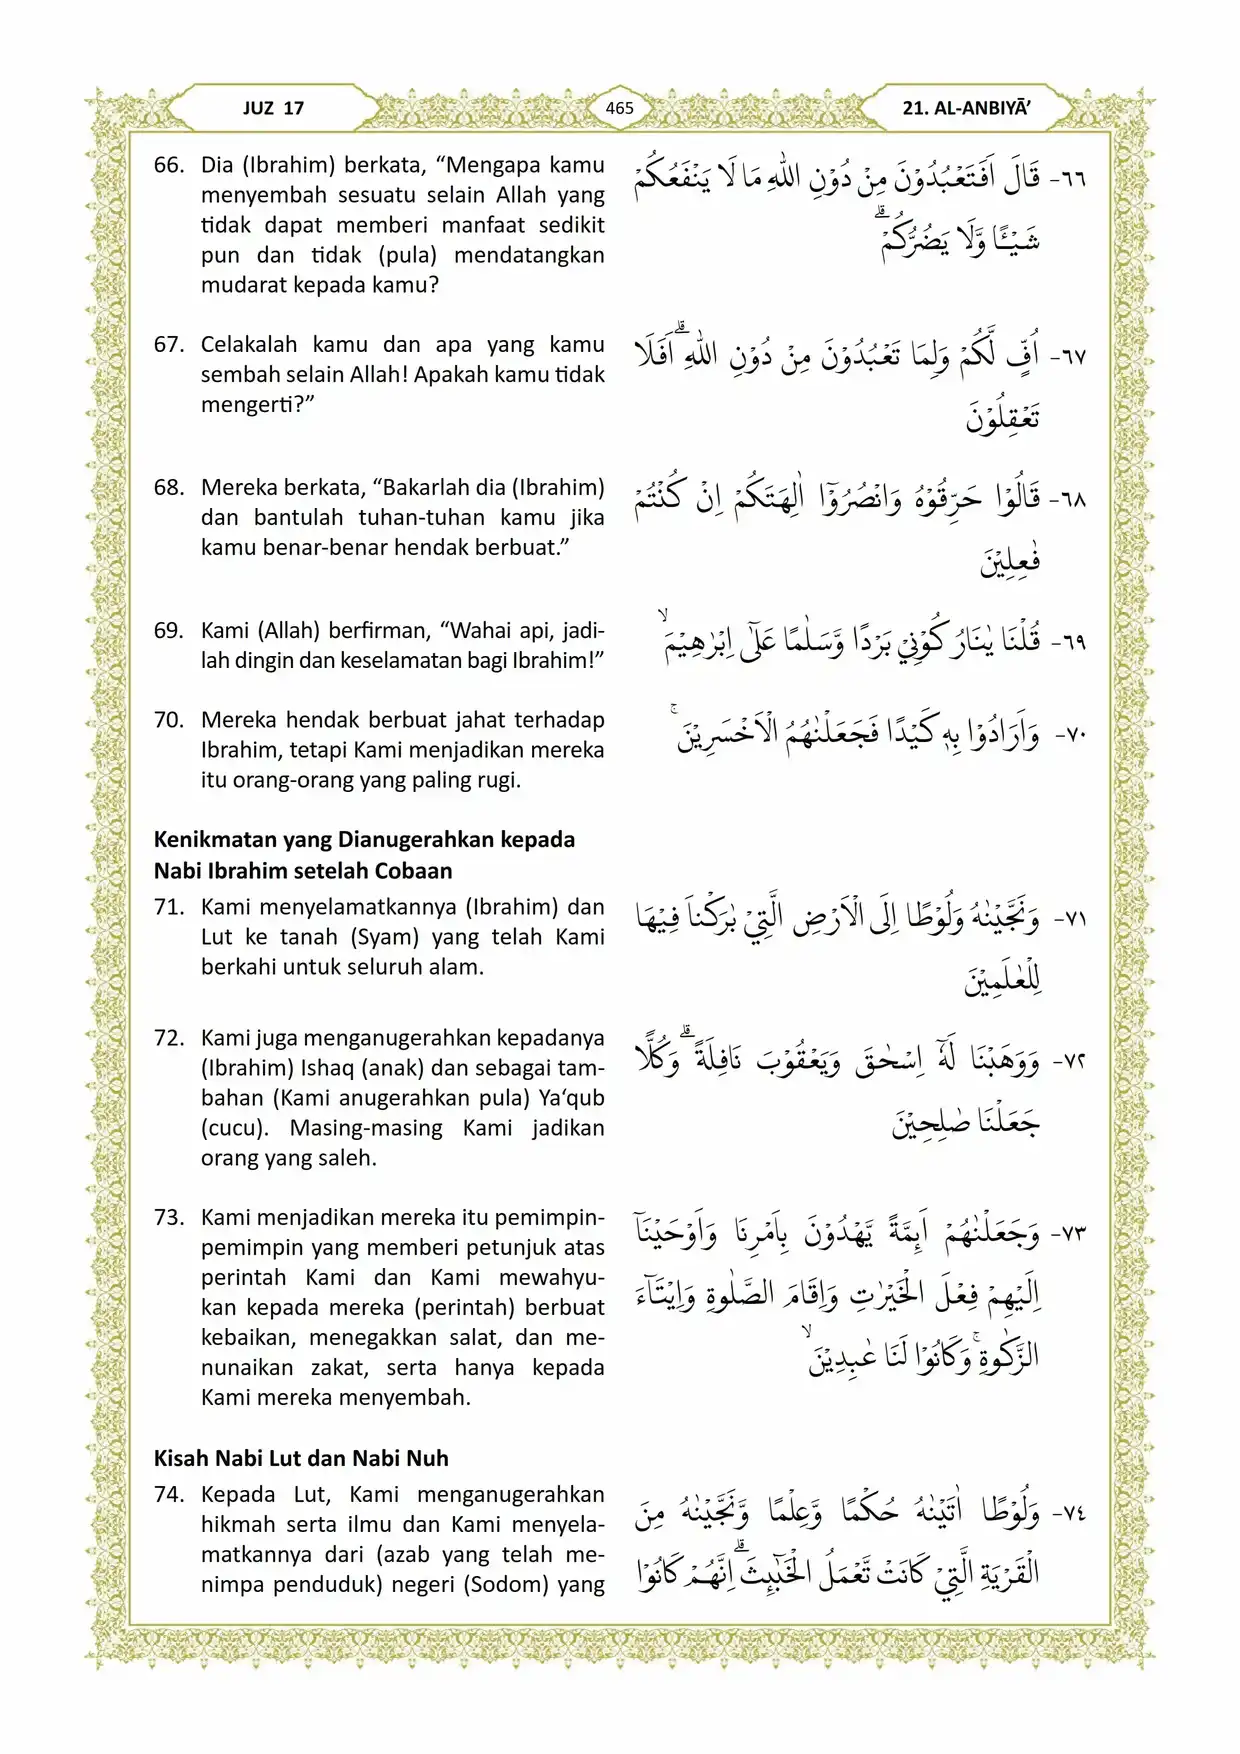 JUZ 17
465
21. AL-ANBIYĀ’
66. Dia (Ibrahim) berkata, “Mengapa kamu
menyembah sesuatu selain Allah yang
tidak dapat memberi manfaat sedikit
pun dan tidak (pula) mendatangkan
mudarat kepada kamu?
٦٦- قَالَ اَفَتَعْبُدُوْنَ مِنْ دُوْنِ اللّٰهِ مَا لَا يَنْفَعُكُمْ
شَيْـًٔا وَّلَا يَضُرُّكُمْ ۗ
67. Celakalah kamu dan apa yang kamu
sembah selain Allah! Apakah kamu tidak
mengerti?”
٦٧- اُفٍّ لَّكُمْ وَلِمَا تَعْبُدُوْنَ مِنْ دُوْنِ اللّٰهِ ۗ اَفَلَا
تَعْقِلُوْنَ
68. Mereka berkata, “Bakarlah dia (Ibrahim)
dan bantulah tuhan-tuhan kamu jika
kamu benar-benar hendak berbuat.”
٦٨- قَالُوْا حَرِّقُوْهُ وَانْصُرُوْٓا اٰلِهَتَكُمْ اِنْ كُنْتُمْ
فٰعِلِيْنَ
69. Kami (Allah) berfirman, “Wahai api, jadi-
lah dingin dan keselamatan bagi Ibrahim!”
٦٩- قُلْنَا يٰنَارُ كُوْنِيْ بَرْدًا وَّسَلٰمًا عَلٰٓى اِبْرٰهِيْمَ ۙ
70. Mereka hendak berbuat jahat terhadap
Ibrahim, tetapi Kami menjadikan mereka
itu orang-orang yang paling rugi.
٧٠- وَاَرَادُوْا بِهٖ كَيْدًا فَجَعَلْنٰهُمُ الْاَخْسَرِيْنَ ۚ
Kenikmatan yang Dianugerahkan kepada
Nabi Ibrahim setelah Cobaan
71. Kami menyelamatkannya (Ibrahim) dan
Lut ke tanah (Syam) yang telah Kami
berkahi untuk seluruh alam.
٧١- وَنَجَّيْنٰهُ وَلُوْطًا اِلَى الْاَرْضِ الَّتِيْ بٰرَكْنَا فِيْهَا
لِلْعٰلَمِيْنَ
72. Kami juga menganugerahkan kepadanya
(Ibrahim) Ishaq (anak) dan sebagai tam-
bahan (Kami anugerahkan pula) Ya‘qub
(cucu). Masing-masing Kami jadikan
orang yang saleh.
٧٢- وَوَهَبْنَا لَهٗٓ اِسْحٰقَ وَيَعْقُوْبَ نَافِلَةً ۗ وَكُلًّا
جَعَلْنَا صٰلِحِيْنَ
73. Kami menjadikan mereka itu pemimpin-
pemimpin yang memberi petunjuk atas
perintah Kami dan Kami mewahyu-
kan kepada mereka (perintah) berbuat
kebaikan, menegakkan salat, dan me-
nunaikan zakat, serta hanya kepada
Kami mereka menyembah.
٧٣- وَجَعَلْنٰهُمْ اَىِٕمَّةً يَّهْدُوْنَ بِاَمْرِنَا وَاَوْحَيْنَآ
اِلَيْهِمْ فِعْلَ الْخَيْرٰتِ وَاِقَامَ الصَّلٰوةِ وَاِيْتَاۤءَ
الزَّكٰوةِ ۚ وَكَانُوْا لَنَا عٰبِدِيْنَ ۙ
Kisah Nabi Lut dan Nabi Nuh
74. Kepada Lut, Kami menganugerahkan
hikmah serta ilmu dan Kami menyela-
matkannya dari (azab yang telah me-
nimpa penduduk) negeri (Sodom) yang
٧٤- وَلُوْطًا اٰتَيْنٰهُ حُكْمًا وَّعِلْمًا وَّنَجَّيْنٰهُ مِنَ
الْقَرْيَةِ الَّتِيْ كَانَتْ تَّعْمَلُ الْخَبٰۤىِٕثَ ۗ اِنَّهُمْ كَانُوْا